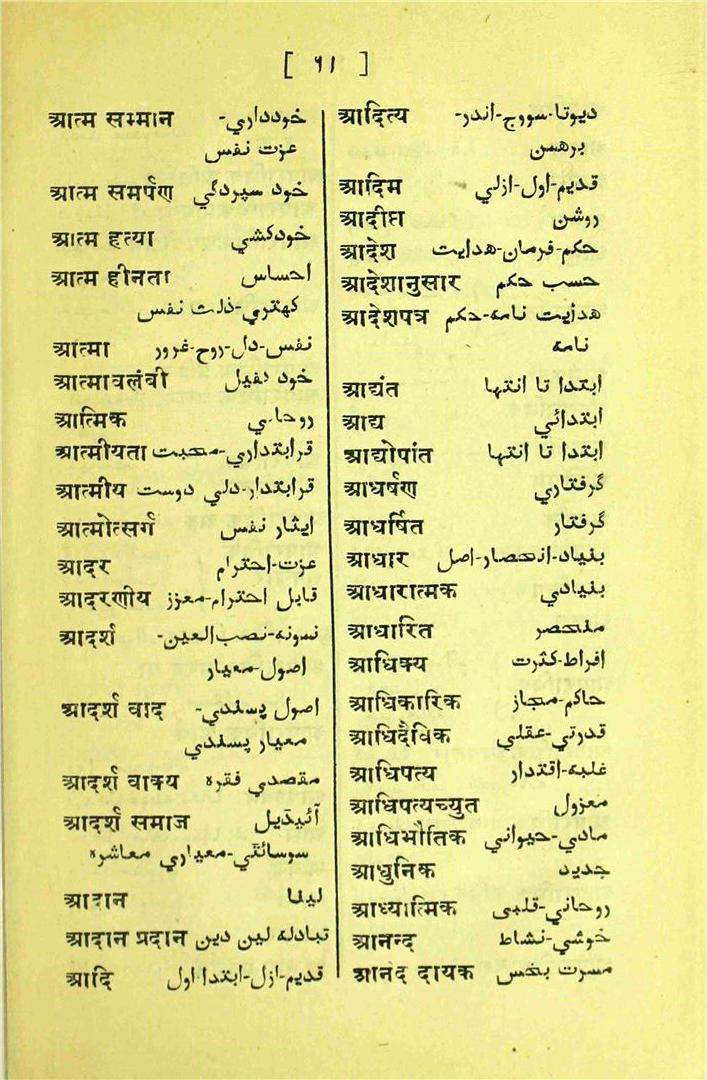 [ ٦١ ]
आत्म सम्मान خودداري-
عزت نفس
आत्म समर्पण خود سپردگي
आत्म हत्या خودکشي
आत्म हीनता احساس
کهتري-ذلت نفس
आत्मा نفس-دل-روح-غرور
आत्मावलंबी خود کفيل
आत्मिक روحاني
आत्मीयता قرابتداري-محبت
आत्मीय قرابتدار-دلي دوست
आत्मोत्सर्ग ايثار نفس
आदर عزت-احترام
आदरणीय قابل احترام-معزز
आदर्श نمونه-نصب‌العين-
اصول-معيار
आदर्श वाद اصول پسندي-
معيار پسندي
आदर्श वाक्य مقصدي فقره
आदर्श समाज آئيڈيل
سوسائٹي-معياري معاشره
आदान لينا
आदान प्रदान تبادله لين دين
आदि قديم-ازل-ابتدا اول
आदित्य ديوتا-سورج-اندر-
برهسن
आदिम قديم-اول-ازلي
आदीप्त روشن
आदेश حکم-فرمان-هدايت
आदेशानुसार حسب حکم
आदेशपत्र هدايت نامه-حکم
نامه
आद्यंत ابتدا تا انتها
आद्य ابتدائي
आद्योपांत ابتدا تا انتها
आधर्षण گرفتاري
आधर्षित گرفتار
आधार بنياد-انحصار-اصل
आधारात्मक بنيادي
आधारित منحصر
आधिक्य افراط-کثرت
आधिकारिक حاکم-مجاز
आधिदैविक قدرتي-عقلي
आधिपत्य غلبه-اقتدار
आधिपत्यच्युत معزول
आधिभौतिक مادي-حيواني
आधुनिक جديد
आध्यात्मिक روحاني-قلبى
आनन्द خوشي-نشاط
आनंद दायक مسرت بخس